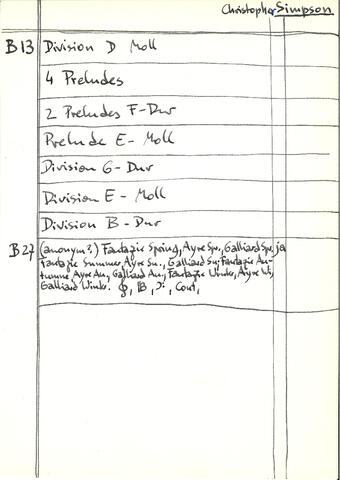 Christopher Simpson
B13 Division D Moll
4 Preludes
2 Preludes F-Dur
Prelude E-Moll
Division G-Dur
Division E-Moll
Division B-Dur
B27 (anonym?) Fantazie Spring, Ayre Spr., Galliard Spr.
Fantazie Summer, Ayre Su., Galliard Su, Fantazie Au-
tumne Ayre Au, Galliard Au., Fantazie Winter, Ayre Wi,
Galliard Winter. Cont,